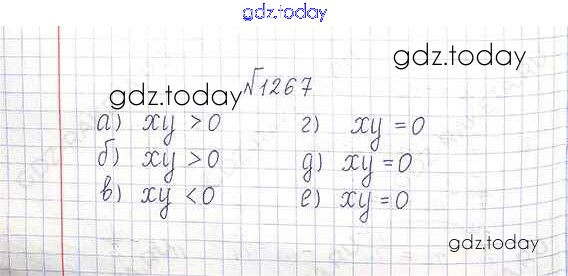 gdz.today
gdz.today
gdz.today
№1267
а) xy > 0
г) xy = 0
б) xy > 0
д) xy = 0
в) xy < 0
е) xy = 0
gdz.today